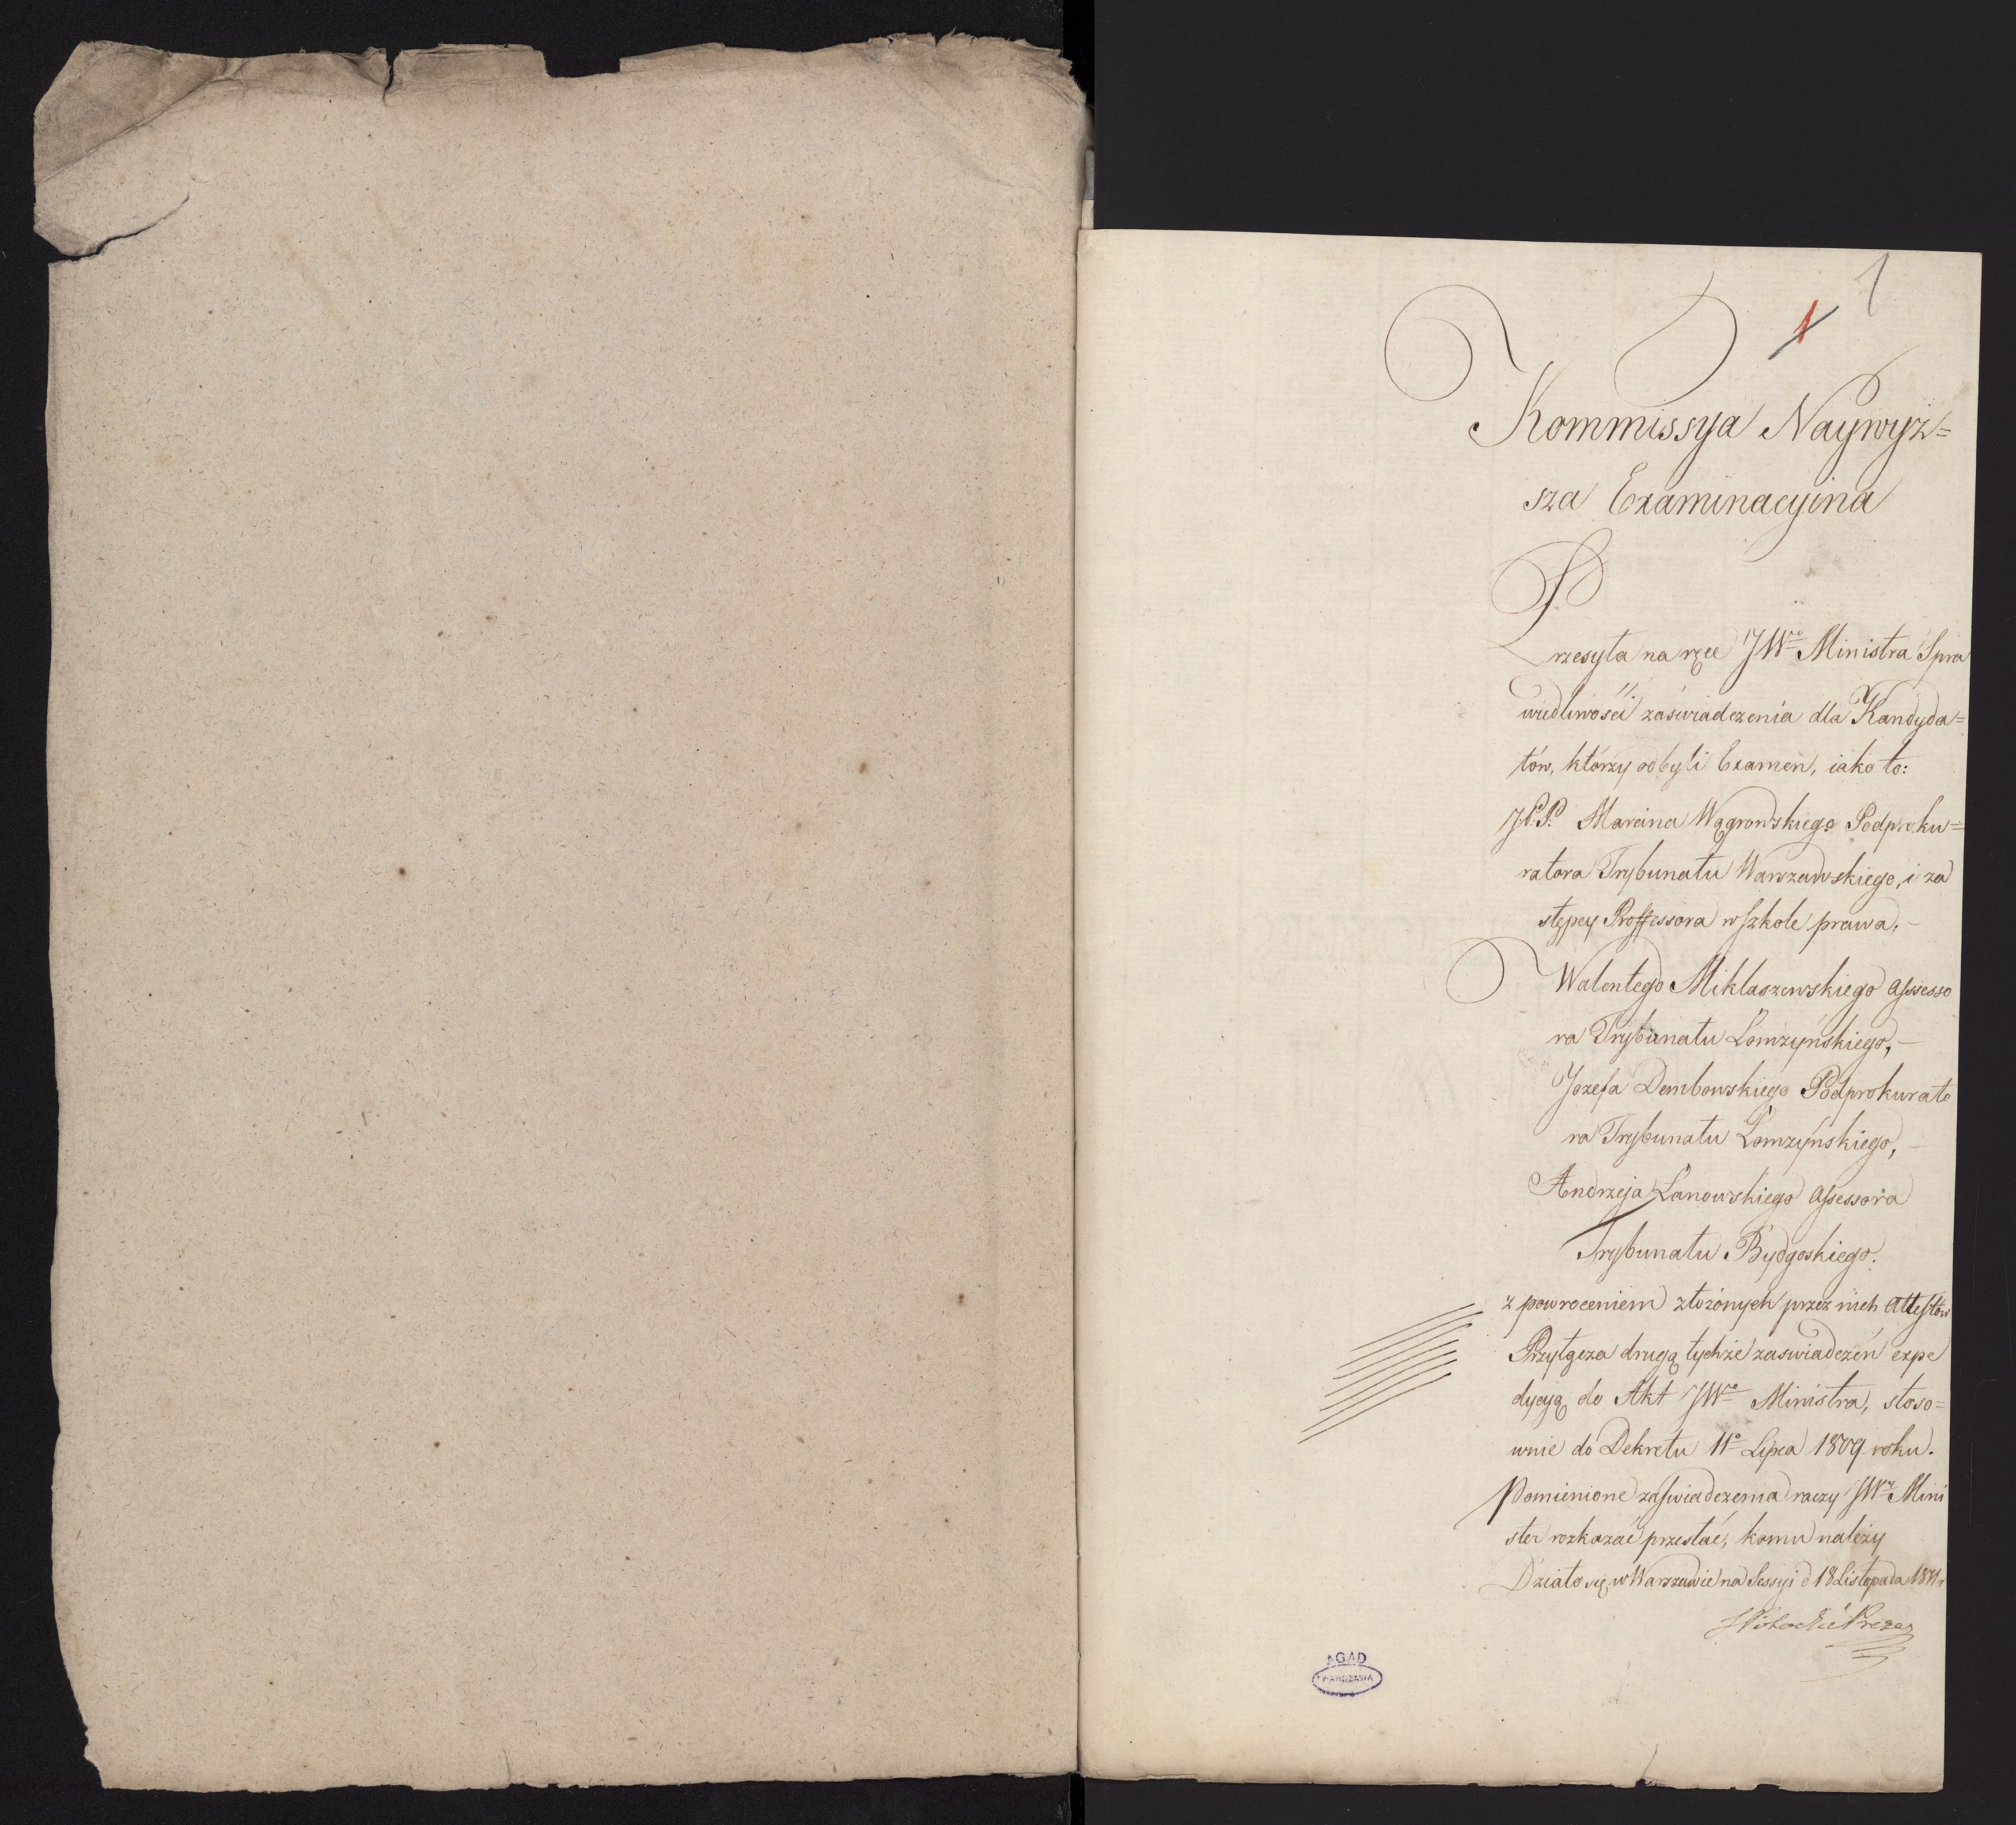 1
1
Kommissya Naywyż=
sza Examinacyina
Przesyła na ręce JWgo Ministra Spra
wiedliwości zaświadczenia dla Kandyda=
tów, którzy odbyli Examen, iako to:
J.P.P. Marcina Wągrowskiego Podproku=
ratora Trybunału Warszawskiego, i za
stępcy Proffessora w Szkole prawa, –
Walentego Miklaszewskiego Assesso
ra Trybunału Łomzyńskiego, –
Jozefa Dembowskiego Podprokurato
ra Trybunału Łomzyńskiego, –
Andrzeja Lanowskiego Assessora
Trybunału Bydgoskiego.
z powroceniem złożonych przez nich Attestów
Przyłącza drugą tychże zaswiadczeń expe
dycyą do Akt JWo Ministra, stoso=
wnie do Dekretu 11o Lipca 1809 roku.
Pomienione zaswiadczenia raczy JWy Mini
ster rozkazać przesłać, komu należy
Działo się w Warszawie na Sessyi d 18 Listopada 1811 r
Prezes
AGAD
WARSZAWA